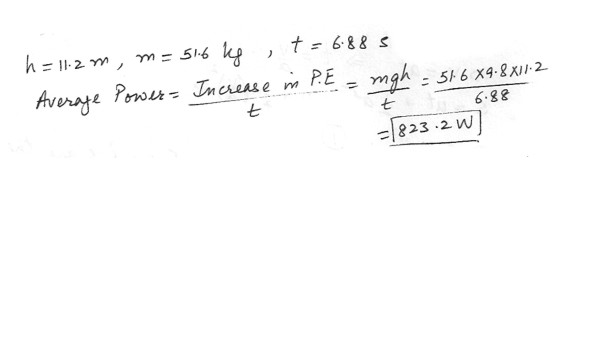 h = 11.2 m, m = 51.6 kg, t = 6.88 s
Average Power = Increase in P.E / t = mgh / t = 51.6 X 9.8 X 11.2 / 6.88
= 823.2 W